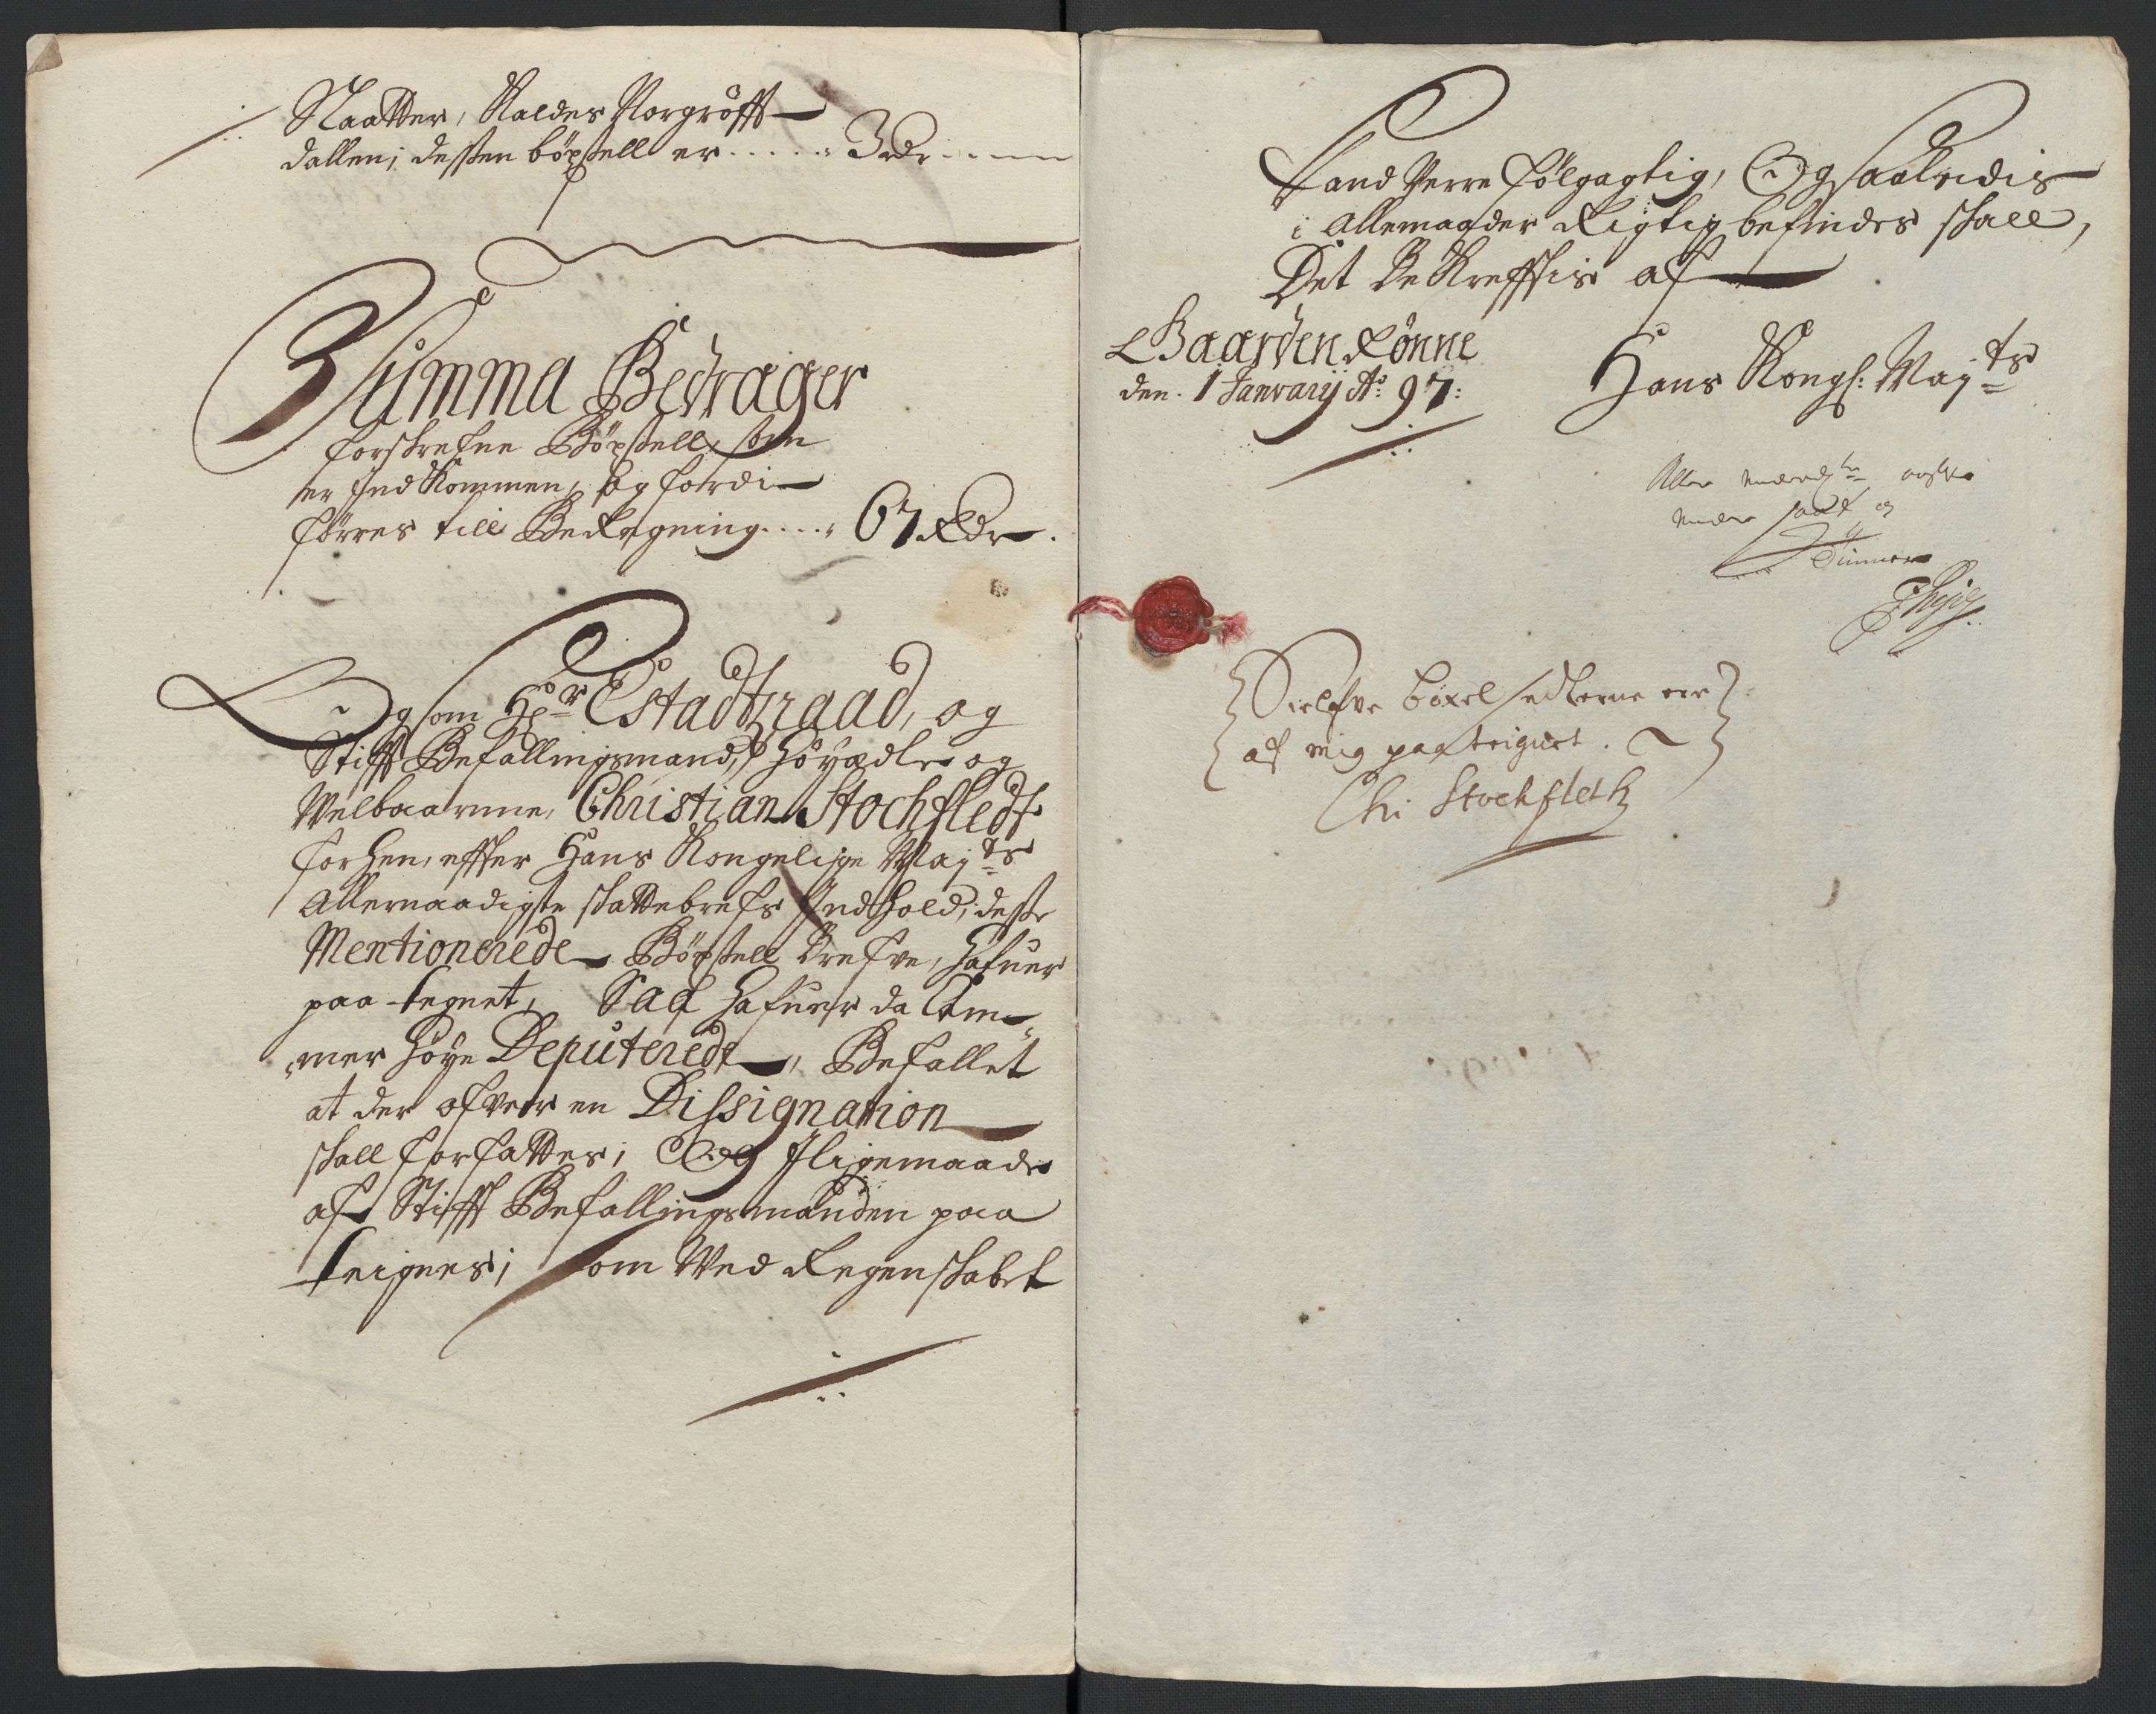 Slaatter, Kaldes Norgröfft
dallen; dessen böxsell er ..... 3 rdr
Summa Bedrager
forskrefne Böxsell, som
er Indkommen, og fordi
förres till Beregning .... 67 Rdr.
Og som Hr Estadtzraad, og
Stifft Befallingsmand, Höyædle og
Welbaarnne, Christian Stochfledt
forhen, effter Hans Kongelige Maj:ts
Allernaadigste skattebrefs Indhold, desse
Mentionerede Böxsell Brefve, hafuer
paa tegnet, Saa hafuer da Cam-
mer höye Deputerede, Befallet
at der ofver en Dissignation
skall forfattes; Og Iligemaade
af Stifft Befallingsmanden paa
teignes; som Wed Regenskabet
kand Verre fölgagtig, Og saaledis
i Allemaader Rigtig befindes skall,
Det Bekrefftis af
Gaarden Rönne
den. 1 January Ao 97:
Hans Kongl: Maj:ts
Aller
Sielfve böxel sedlerne ere
af mig paateignet.
Chr Stockfleth